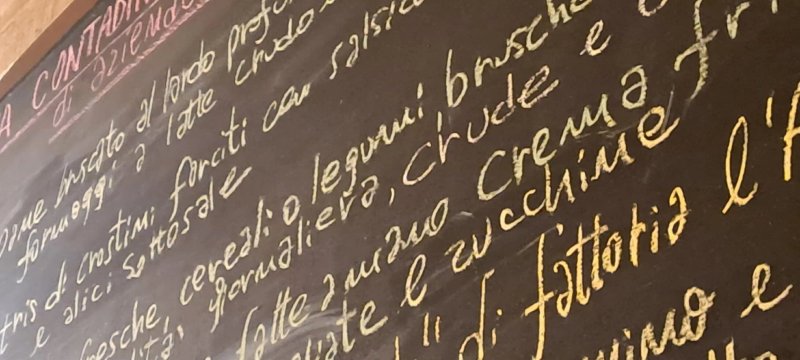 A CONTADIN
di aziend
Pane bruscato al lardo profu
formaggi a latte crudo
tris di crostini farciti con salsic
e alici sottosale
fresche, cereali o legumi brusche
giornaliera, crude e
fatte a mano crema fri
e zucchine
" di fattoria l'
vino e